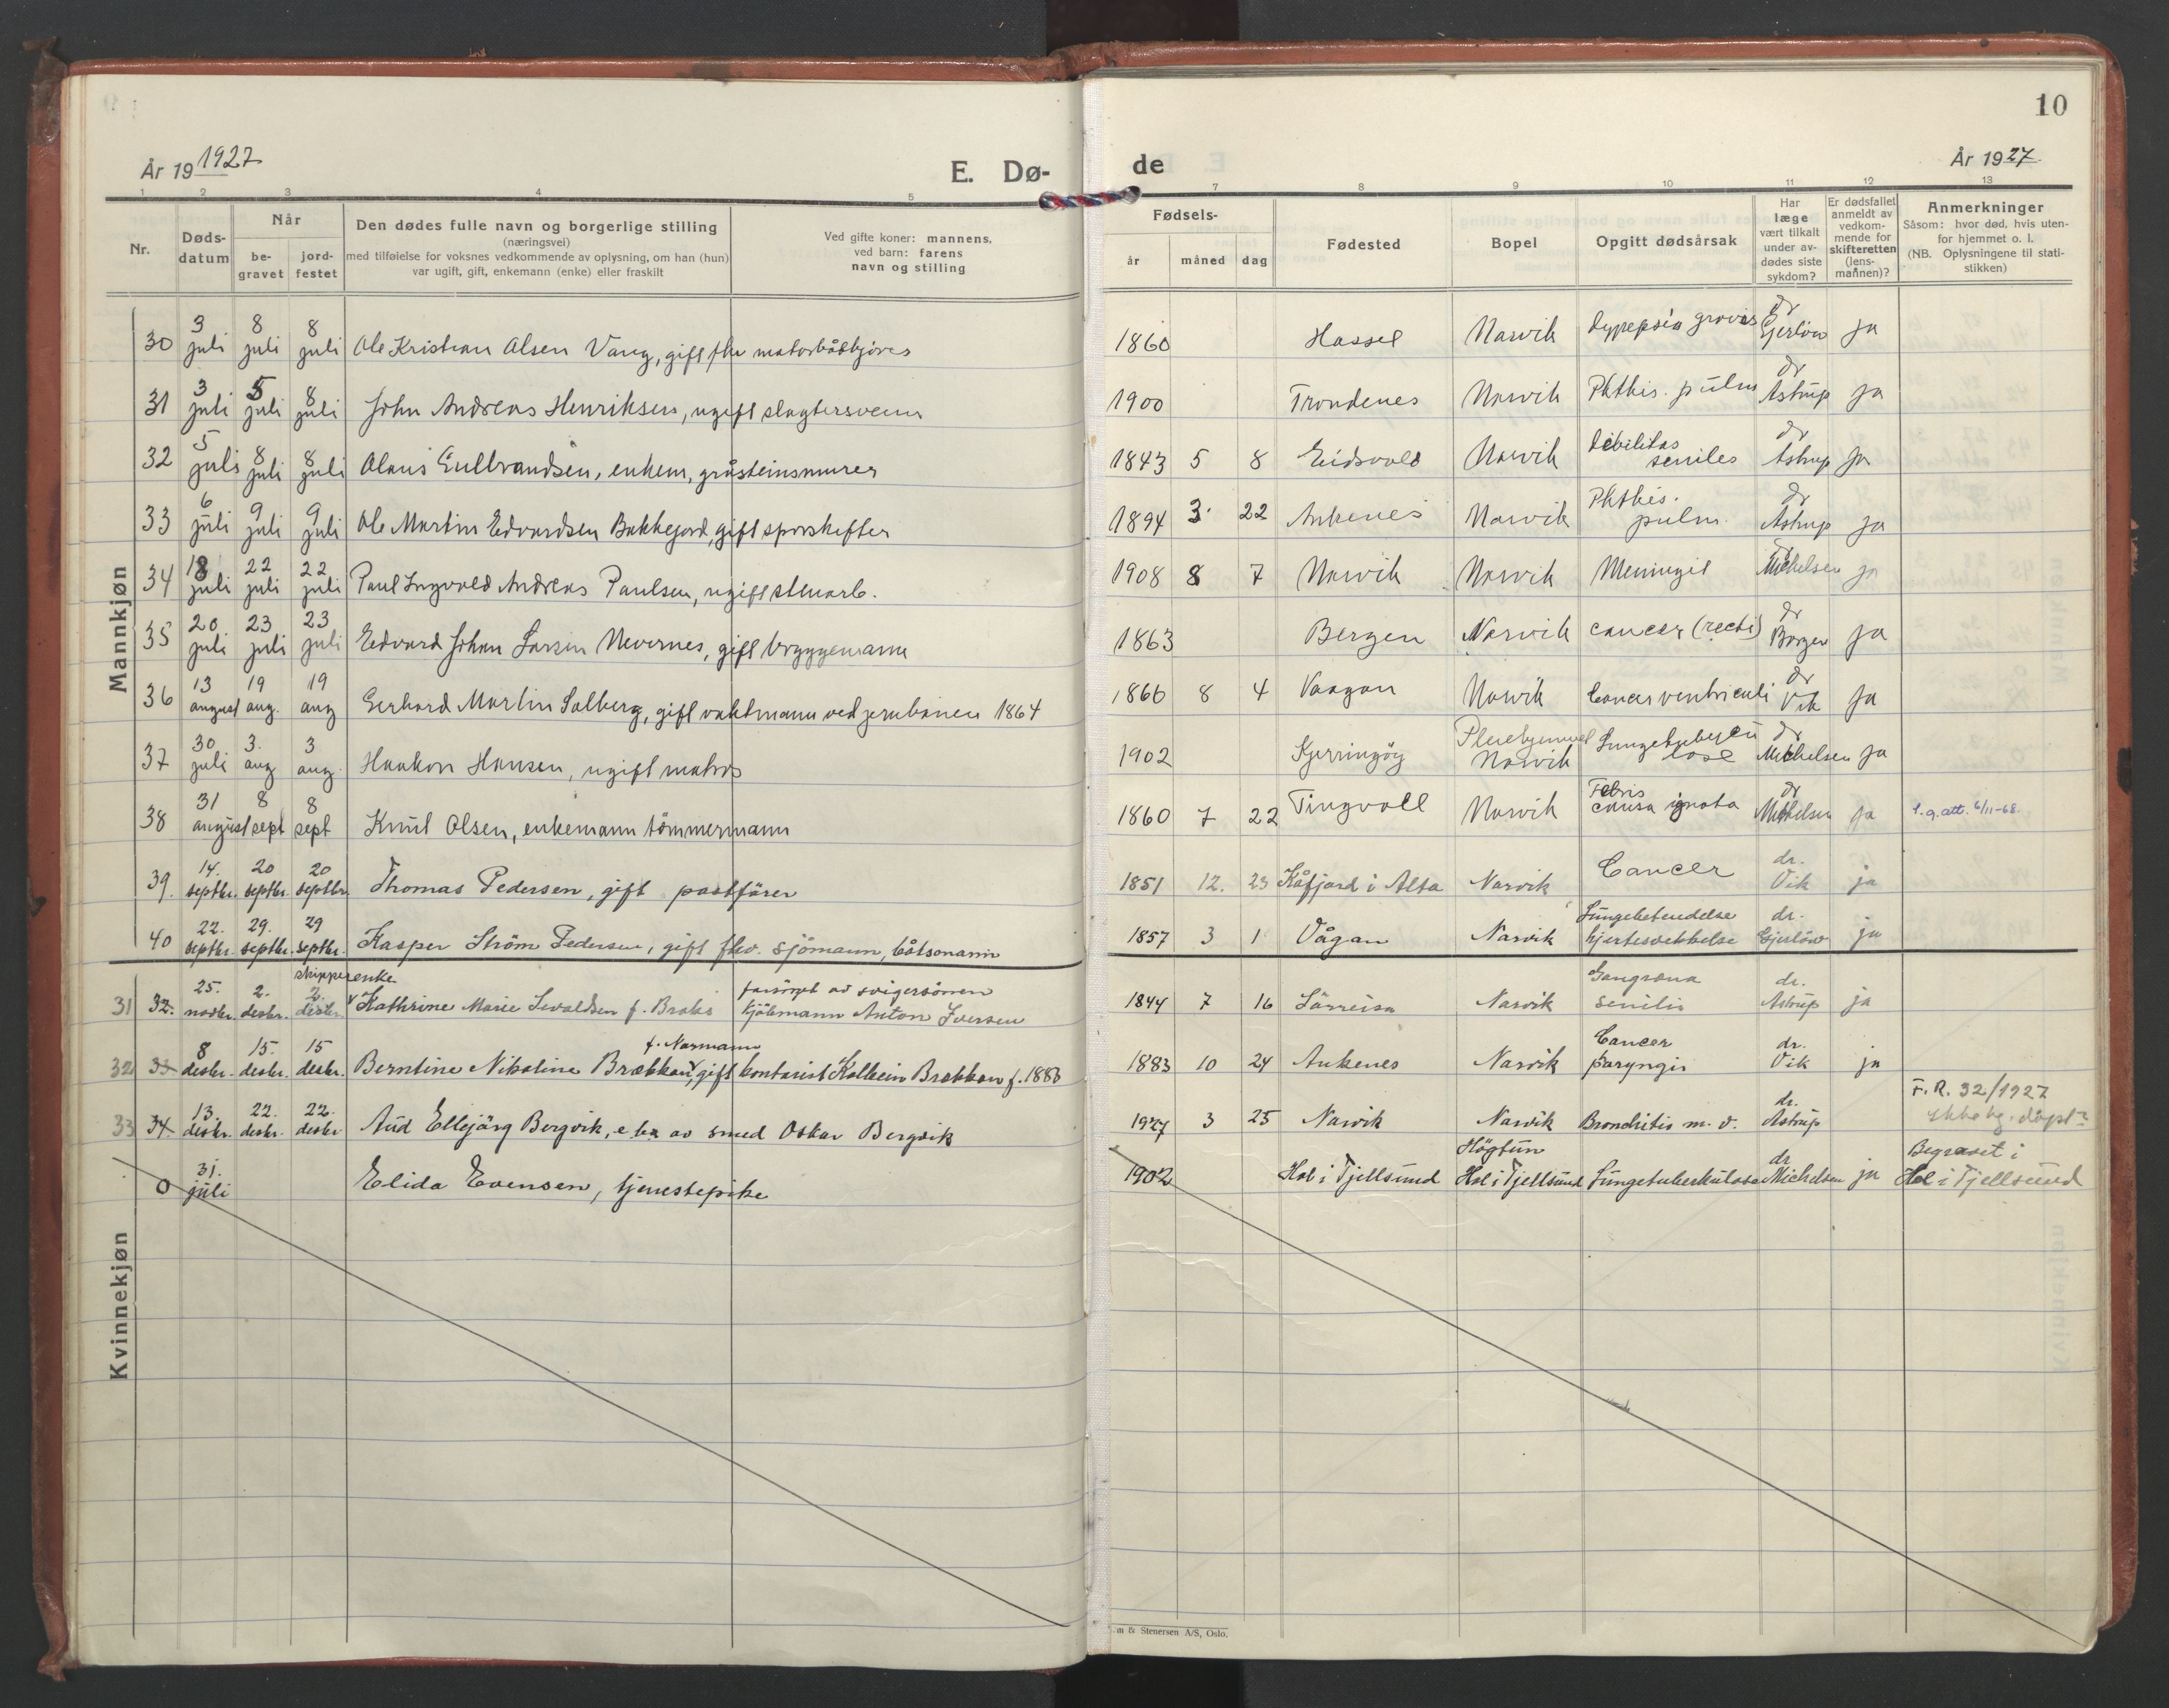 10
År 19 1927
E. Dø-
de
År 1927
1 2 3 4 5
7 8 9 10 11 12 13
Nr.
Døds-
datum
Når
be-
gravet
jord-
festet
Den dødes fulle navn og borgerlige stilling
(næringsvei)
med tilføielse for voksnes vedkommende av oplysning, om han (hun)
var ugift, gift, enkemann (enke) eller fraskilt
Ved gifte koner: mannens,
ved barn: farens
navn og stilling
Fødsels-
år måned dag
Fødested
Bopel
Opgitt dødsårsak
Har
læge
vært tilkalt
under av-
dødes siste
sykdom?
Er dødsfallet
anmeldt av
vedkom-
mende for
skifteretten
(lens-
mannen)?
Anmerkninger
Såsom: hvor død, hvis uten-
for hjemmet o. l.
(NB. Oplysningene til stati-
stikken)
Mannkjøn
30 3 juli 8 juli 8 juli Ole Kristian Olsen Vang, gift fhv 1860 Hassel Narvik dr Gjerløw ja
31 3 juli 5 juli 8 juli John Andreas Henriksen, ugift slagtersvenn 1900 Trondenes Narvik Phthis. pulm dr Astrup ja
32 5 juli 8 juli 8 juli Olaus Gulbrandsen, enkem, gråsteinsmurer 1843 5 8 Eidsvold Narvik debilitas seniles dr Astrup ja
33 6 juli 9 juli 9 juli Ole Martin Edvardsen Bakkejord, gift sporskifter 1894 3 22 Ankenes Narvik Phthis. pulm. dr Astrup ja
34 18 juli 22 juli 22 juli Paul Ingvald Andreas Paulsen, ugift stenarb. 1908 8 7 Narvik Narvik Meningit dr Michelsen ja
35 20 juli 23 juli 23 juli Edvard Johan Larsen Nevernes, gift bryggemann 1863 Bergen Narvik cancer (recti) dr Borgen ja
36 13 august 19 aug. 19 aug Gerhard Martin Solberg, gift vaktmann ved jernbanen 1864 1866 8 4 Vaagan Narvik Cancer ventriculi dr Vik ja
37 30 juli 3. aug 3 aug. Haakon Hansen, ugift matros 1902 Kjerringøy Pleiehjemmet Narvik Lungetuberculose dr Michelsen ja
38 31 august 8 sept 8 sept Knut Olsen, enkemann tömmermann 1860 7 22 Tingvoll Narvik Febris causa ignota dr Michelsen ja 6/11-68.
39. 14. septbr. 20 septbr. 20 septbr. Thomas Pedersen, gift postförer 1851 12. 23 Kåfjord i Alta Narvik Cancer dr. Vik ja
40 22. septbr. 29. septbr. 29 septbr. Kasper Ström Pedersen, gift fhv. sjömann, båtsmann 1857 3 1 Vågan Narvik Lungebetendelse hjertesvekkelse dr. Gjerlöw ja
Kvinnekjøn
skipperenke
31 32. 25. novbr. 2. desbr. 2. desbr. Kathrine Marie Sivaldsen f. forsörget av svigersönnen kjöbmann Anton Iversen 1844 7 16 Sörreisa Narvik Gangræna senilis dr. Astrup ja
f. Normann
32 33 8 desbr. 15. desbr. 15 desbr. Berntine Nikoline Brækkan, gift kontorist Kolbein Brækkan f. 1883 1883 10 24 Ankenes Narvik Cancer paryngis dr. Vik ja
33 34. 13. desbr. 22. desbr. 22. desbr Aud Ellejörg Bergvik, e. bn av smed Oskar Bergvik 1927 3 25 Narvik Narvik Bronchitis m. v. dr. Astrup F. R. 32/1927 Ekte bg. døpt?
0 31. juli Elida Evensen, tjenestepike 1902 Hol i Tjellsund Högtun Hol i Tjellsund Lungetuberkulose dr Michelsen ja Begravet i Hol i Tjellsund
m & Stenersen A/S, Oslo.